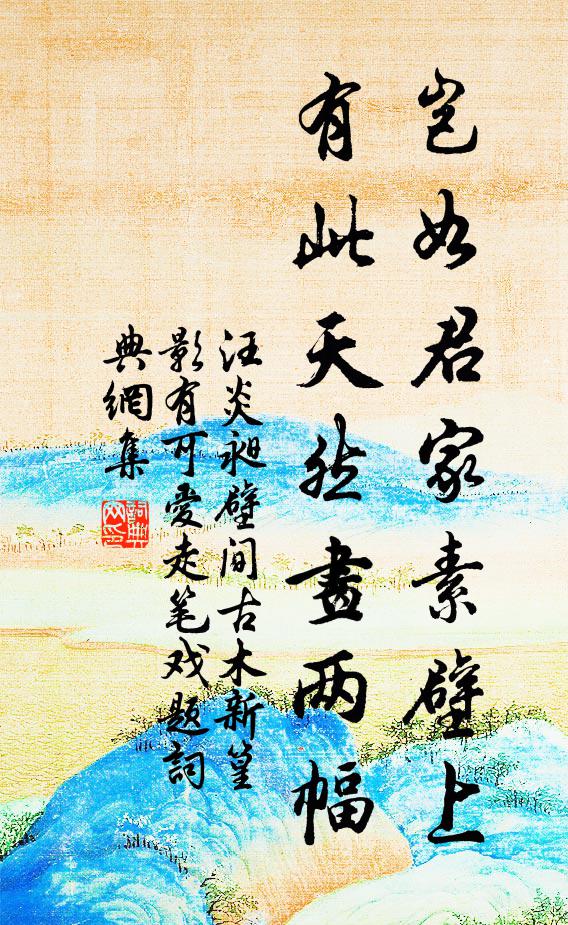 岂如君家素壁上
有此天然畫两幅
汪炎昶壁间古木新篁
影有可爱走笔戏题詞
典網集
詞典
网印